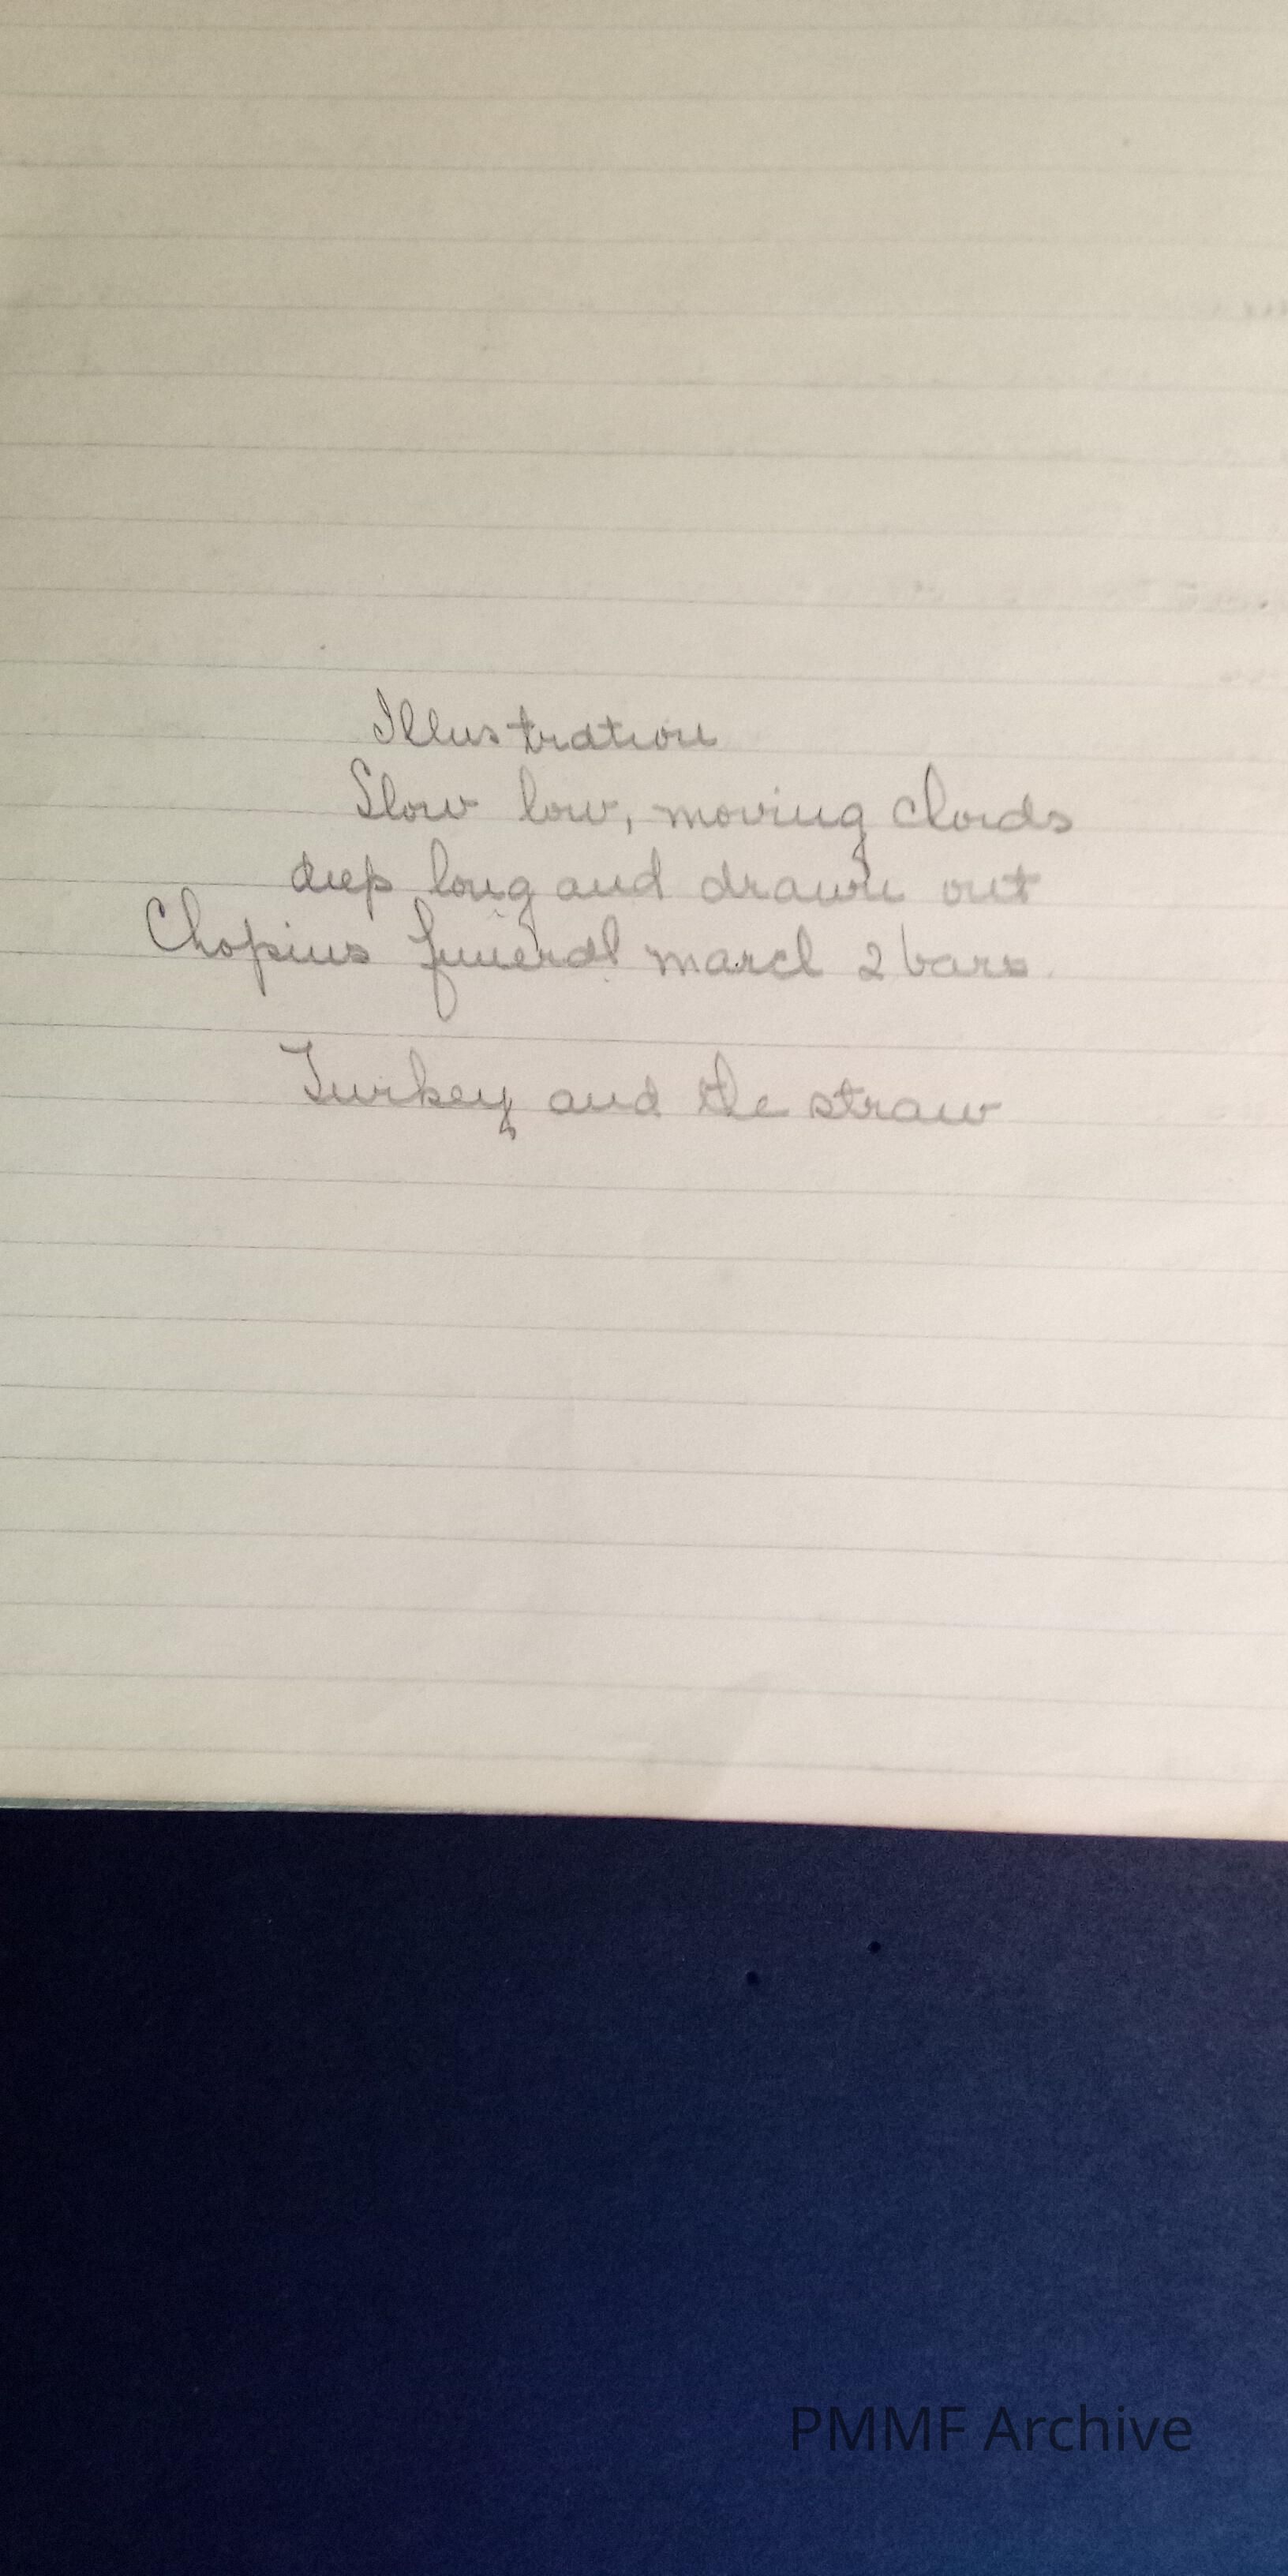 Illustration
Slow low, moving chords
deep long and drawn out
Chopins funeral march 2 bars.
Turkey and the straw
PMMF Archive